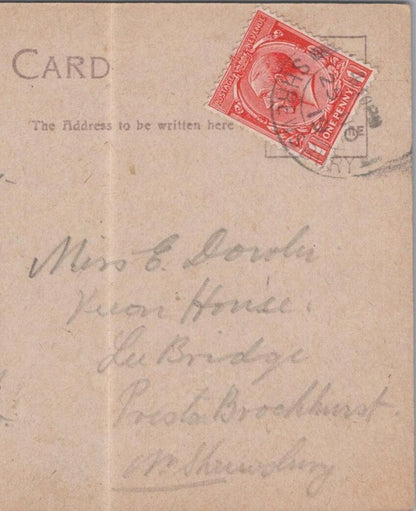 CARD
The Address to be written here
POSTAGE REVENUE
1 ONE PENNY 1
Miss E. Dowler
House.
Lee Bridge
Presta Brockhurst.
Nr Shrewsbury